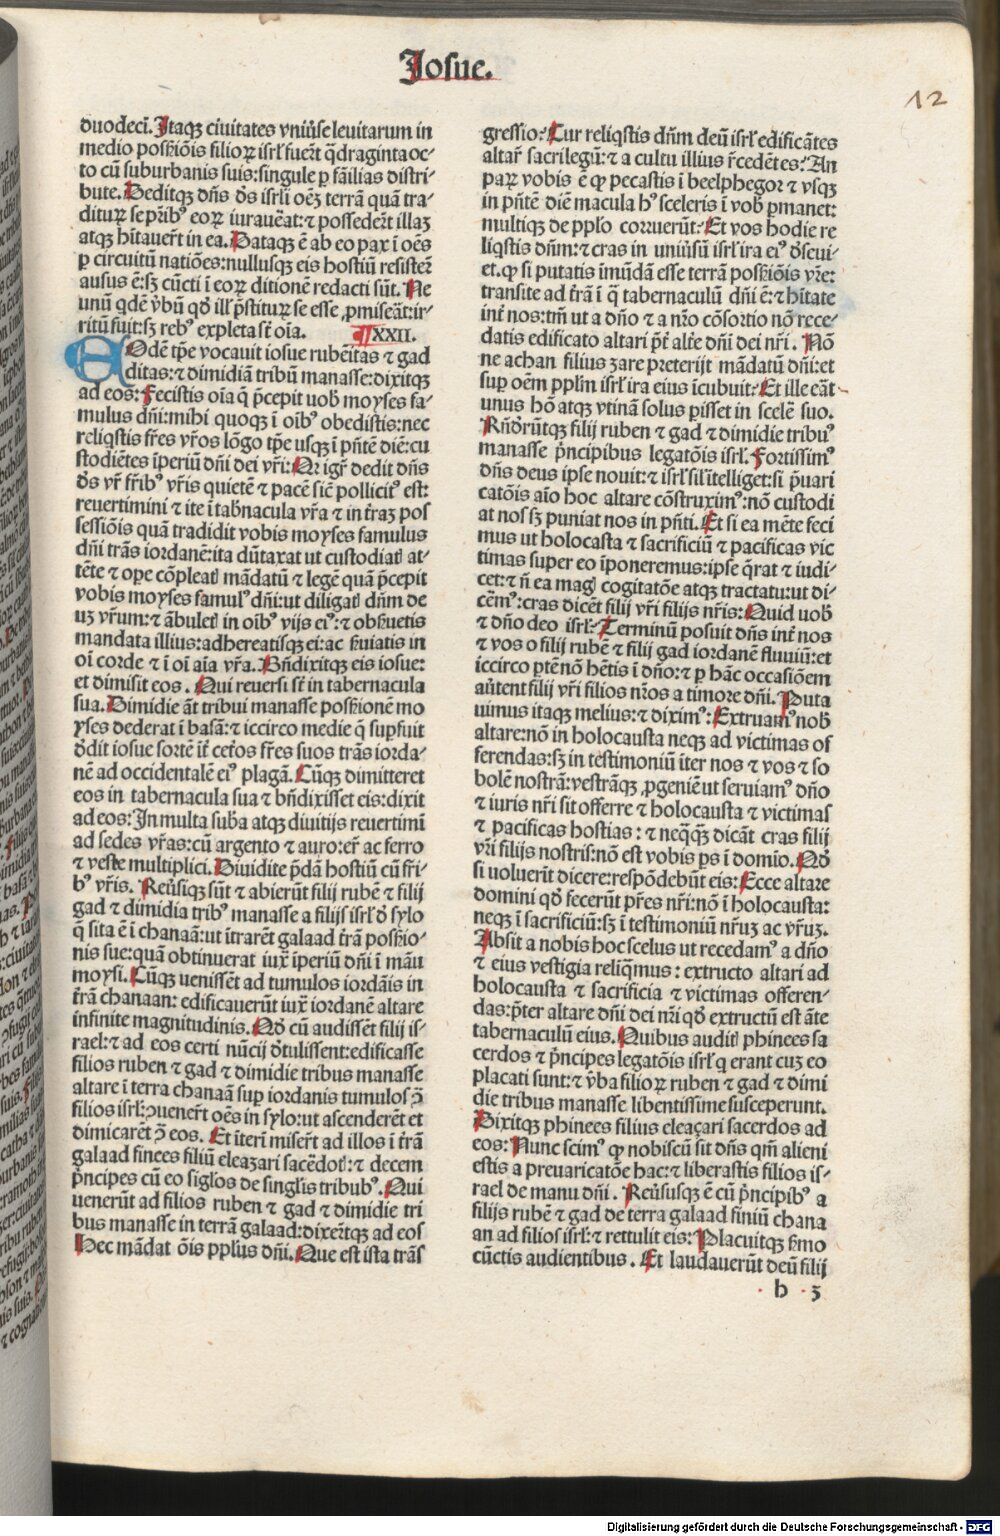 Iosue.
12
duodecī. Itaqꝫ ciuitates vniũse leuitarum in
medio possiōis filioꝝ isrl̄ fuerт̄ q̄draginta oc-
to cū suburbanis suis: singule ꝑ fāilias distri-
bute. Deditqꝫ dn̄s d̄s isrl̄i oēʒ terrā quā tra-
diturꝝ se pr̄ib⁹ eoꝝ iurauēat: ⁊ possedeт̄ illaʒ
atqꝫ hītaueт̄ in ea. Dataqꝫ ē ab eo pax ī oēs
ꝑ circuitū natiōes: nullusqꝫ eis hostiū resisteт̄
ausus ē: sʒ cūcti ī eoꝝ ditionē redacti sūt. Ne
unū qdē v̄bū qd̄ ill̓ p̄stiturꝝ se esse ꝓmiseāt: ir-
ritū fuit: sʒ reb⁹ expleta sт̄ oīa. ¶XXII.
EOdē tp̄e vocauit iosue rubēitas ⁊ gad
ditas: ⁊ dimidiā tribū manasse: dixitqꝫ
ad eos: Fecistis oīa q̄ p̄cepit uob̄ moyses fa-
mulus dn̄i: mihi quoqꝫ ī oīb⁹ obedistis: nec
reliqstis fr̄es vr̄os lōgo tp̄e usqꝫ ī pn̄tē diē: cu
stodiētes īperiū dn̄i dei vr̄i: Qr igr̄ dedit dn̄s
d̄s vr̄ fr̄ib⁹ vr̄is quietē ⁊ pacē sic̄ pollicit⁹ est:
reuertimini ⁊ ite ī tab̄nacula vr̄a ⁊ in т̄raʒ pos
sessiōis quā tradidit vobis moyses famulus
dn̄i trās iordanē: ita dūtaxat ut custodiatꝭ at-
tēte ⁊ ope cōpleatꝭ mādatū ⁊ legē quā p̄cepit
vobis moyses famul⁹ dn̄i: ut diligatꝭ dn̄m de
uʒ vr̄um: ⁊ ābuletꝭ in oīb⁹ vijs ei⁹: ⁊ obs̄uetis
mandata illius: adhereatisqꝫ ei: ac s̄uiatis in
oī corde ⁊ ī oī aīa vr̄a. Bn̄dixitqꝫ eis iosue:
et dimisit eos. Qui reuersi sт̄ in tabernacula
sua. Dimidie āt tribui manasse possionē mo
yses dederat ī basā: ⁊ iccirco medie q̄ suꝑfuit
d̄dit iosue sortē iт̄ ceт̄os fr̄es suos trās iorda-
nē ad occidentalē ei⁹ plagā. Cūqꝫ dimitteret
eos in tabernacula sua ⁊ bn̄dixisset eis: dixit
ad eos: In multa sub̄a atqꝫ diuitijs reuertimī
ad sedes vr̄as: cū argento ⁊ auro: eт̄ ac ferro
⁊ veste multiplici. Diuidite p̄dā hostiū cū fr̄i-
b⁹ vr̄is. Reũsiqꝫ sūt ⁊ abierūt filij rubē ⁊ filij
gad ⁊ dimidia trib⁹ manasse a filijs isrl̄ d̄ sylo
q̄ sita ē ī chanaā: ut ītrarēt galaad т̄rā possio-
nis sue: quā obtinuerat iux̄ īperiū dn̄i ī māu
moysi. Cūqꝫ uenissēt ad tumulos iordāis in
т̄rā chanaan: edificauerūt iux̄ iordanē altare
infinite magnitudinis. Qd̄ cū audissēt filij is-
rael: ⁊ ad eos certi nūcij d̄tulissent: edificasse
filios ruben ⁊ gad ⁊ dimidie tribus manasse
altare ī terra chanaā suꝑ iordanis tumulos ꝯ̄
filios isrl̄: ꝯueneт̄ oēs in sylo: ut ascenderēt et
dimicarēt ꝯ̄ eos. Et iteri miseт̄ ad illos ī т̄rā
galaad finees filiū eleazari sacēdotꝭ: ⁊ decem
p̄ncipes cū eo siglos de singlis tribub⁹. Qui
uenerūt ad filios ruben ⁊ gad ⁊ dimidie tri
bus manasse in terrā galaad: dixeт̄qꝫ ad eos
Hec mādat ōis pplus dn̄i. Que est ista trās
gressio: Cur reliqstis dn̄m deū isrl̄ edificātes
altaт̄ sacrilegū: ⁊ a cultu illius r̄cedētes: An
parꝝ vobis ē ꝙ peccastis ī beelphegor ⁊ vsqꝫ
in pn̄tē diē macula h⁹ sceleris ī vob̄ ꝑmanet:
multiqꝫ de pplo corruerūt: Et vos hodie re
liqstis dn̄m: ⁊ cras in uniũsū isrl̄ ira ei⁹ d̄seui-
et. ꝙ si putatis īmūdā esse terrā possiōis vr̄e:
transite ad т̄rā ī q̄ tabernaculū dn̄i ē: ⁊ hītate
inт̄ nos: tm̄ ut a dn̄o ⁊ a nr̄o cōsortio nō rece-
datis edificato altari pт̄ alт̄e dn̄i dei nr̄i. Nō
ne achan filius zare preterijt mādatū dn̄i: et
suꝑ oēm pplm̄ isrl̄ ira eius īcubuit: Et ille eāt
unus hō atqꝫ vtinā solus ꝑisset in scelē suo.
Rn̄dr̄ūtqꝫ filij ruben ⁊ gad ⁊ dimidie tribu⁹
manasse p̄ncipibus legatōis isrl̄. Fortissim⁹
dn̄s deus ipse nouit: ⁊ isrl̄ sil̄ ītelliget: si p̄uari
catōis aīo hoc altare cōstruxim⁹: nō custodi
at nos sʒ puniat nos in pn̄ti. Et si ea mēte feci
mus ut holocasta ⁊ sacrificiū ⁊ pacificas vic
timas super eo īponeremus: ipse q̄rat ⁊ iudi-
cet: ⁊ n̄ ea magꝭ cogitatōe atqꝫ tractatu: ut di-
cēm⁹: cras dicēt filij vr̄i filijs nr̄is: Quid uob̄
⁊ dn̄o deo isrl̄: Terminū posuit dn̄s inт̄ nos
⁊ vos o filij rubē ⁊ filij gad iordanē fluuiū: et
iccirco ꝑtē nō hētis ī dn̄o: ⁊ ꝑ hāc occasiōem
aũtent filij vr̄i filios nr̄os a timore dn̄i. Puta
uimus itaqꝫ melius: ⁊ dixim⁹: Extruam⁹ nob̄
altare: nō in holocausta neqꝫ ad victimas of
ferendas: sʒ in testimoniū iter nos ⁊ vos ⁊ so
bolē nostrā: vestrāqꝫ ꝓgeniē ut seruiam⁹ dn̄o
⁊ iuris nr̄i sit offerre ⁊ holocausta ⁊ victimas
⁊ pacificas hostias: ⁊ neq̄q̄ dicāt cras filij
vr̄i filijs nostris: nō est vobis ꝑs ī domīo. Qd̄
si voluerīt dicere: respōdebūt eis: Ecce altare
domini qd̄ fecerūt pr̄es nr̄i: nō ī holocausta:
neqꝫ ī sacrificiū: sʒ ī testimoniū nr̄uʒ ac vr̄uʒ.
Absit a nobis hoc scelus ut recedam⁹ a dn̄o
⁊ eius vestigia reliq̄mus: extructo altari ad
holocausta ⁊ sacrificia ⁊ victimas offeren-
das: p̄ter altare dn̄i dei nr̄i qd̄ extructū est āte
tabernaculū eius. Quibus auditꝭ phinees sa
cerdos ⁊ p̄ncipes legatōis isrl̄ q erant cuʒ eo
placati sunt: ⁊ v̄ba filioꝝ ruben ⁊ gad ⁊ dimi
die tribus manasse libentissime susceperunt.
Dixitqꝫ phinees filius eleaçari sacerdos ad
eos: Nunc scim⁹ ꝙ nobiscū sit dn̄s qm̄ alieni
estis a preuaricatōe hac: ⁊ liberastis filios is-
rael de manu dn̄i. Reũsusqꝫ ē cū p̄ncipib⁹ a
filijs rubē ⁊ gad de terra galaad finiū chana
an ad filios isrl̄: ⁊ rettulit eis: Placuitqꝫ s̄mo
cūctis audientibus. Et laudauerūt deū filij
b 3
Digitalisierung gefördert durch die Deutsche Forschungsgemeinschaft - DFG